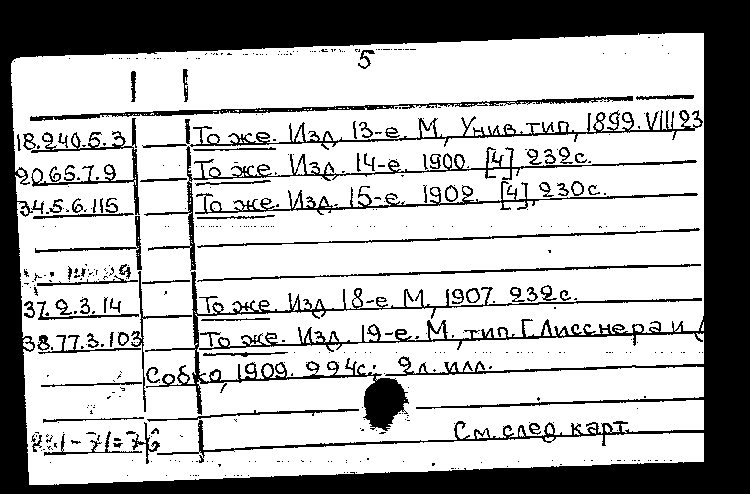 5
18.240.5.3 То же. Изд. 13-е. М., Унив. тип., 1899. VIII, 23
20.65.7.9 То же. Изд. 14-е. 1900. [4], 232 с.
34.5.6.115 То же. Изд. 15-е. 1902. [4], 230 с.
37.2.3.14 То же. Изд. 18-е. М., 1907. 232 с.
38.77.3.103 То же. Изд. 19-е. М., тип. Г. Лисснера и
Собко, 1909. 224 с.; 2 л. илл.
См. след. карт.